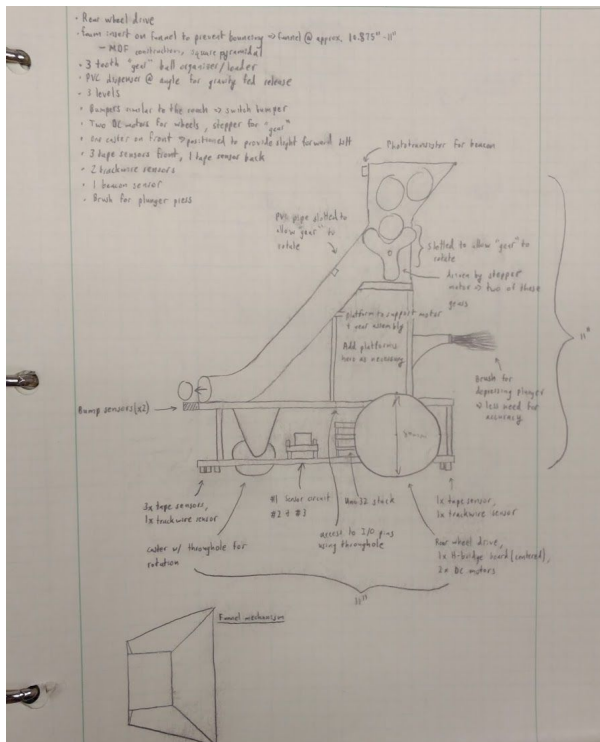 · Rear wheel drive
· Foam insert on funnel to prevent bouncing → Funnel @ approx. 10.875"-11"
– MDF construction, square pyramidal
· 3 tooth "gear" ball organizer/loader
· PVC dispenser @ angle for gravity fed release
· 3 levels
· Bumpers similar to the roach → switch bumper
· Two DC motors for wheels, stepper for "gear"
· caster on front → positioned to provide slight forward tilt
· 3 tape sensors front, 1 tape sensor back
· 2 trackwire sensors
· 1 beacon sensor
· Brush for plunger press
Phototransistor for beacon
PVC pipe slotted to
allow "gear" to
rotate
slotted to allow "gear" to
rotate
driven by stepper
motor → two of these
gears
Platform to support motor
+ gear assembly
Add platforms
here as necessary
11"
Brush for
depressing plunger
→ less need for
accuracy
Bump sensors (x2)
3x tape sensors,
1x trackwire sensor
#1 sensor circuit
#2 + #3
Uno32 stack
1x tape sensor,
1x trackwire sensor
caster w/ throughhole for
rotation
access to I/O pins
using throughhole
Rear wheel drive,
1x H-bridge board (centered),
2x DC motors
11"
Funnel mechanism